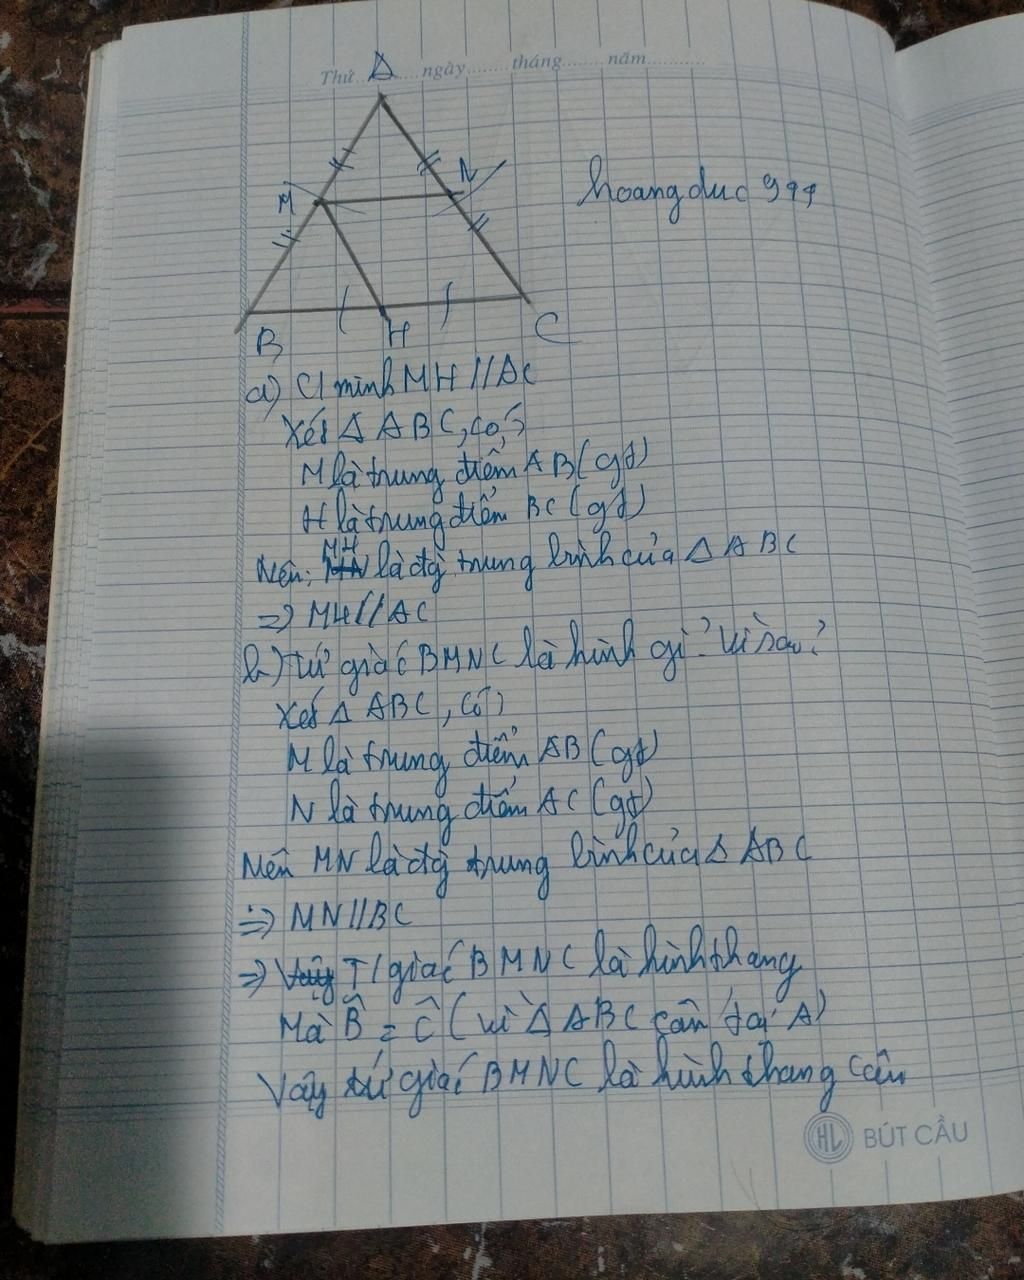 Thứ ngày tháng năm
A
M
N
hoangduc 999
B
H
C
a) C/minh MH//AC
Xét Δ ABC, có:
M là trung điểm AB (gt)
H là trung điểm BC (gt)
Nên: MH là đg trung bình của Δ ABC
=> MH//AC
b) Tứ giác BMNC là hình gì? Vì sao?
Xét Δ ABC, có:
M là trung điểm AB (gt)
N là trung điểm AC (gt)
Nên MN là đg trung bình của Δ ABC
=> MN//BC
=> T/giác BMNC là hình thang
Mà B̂ = Ĉ (vì Δ ABC cân tại A)
Vậy tứ giác BMNC là hình thang cân
HL BÚT CẦU